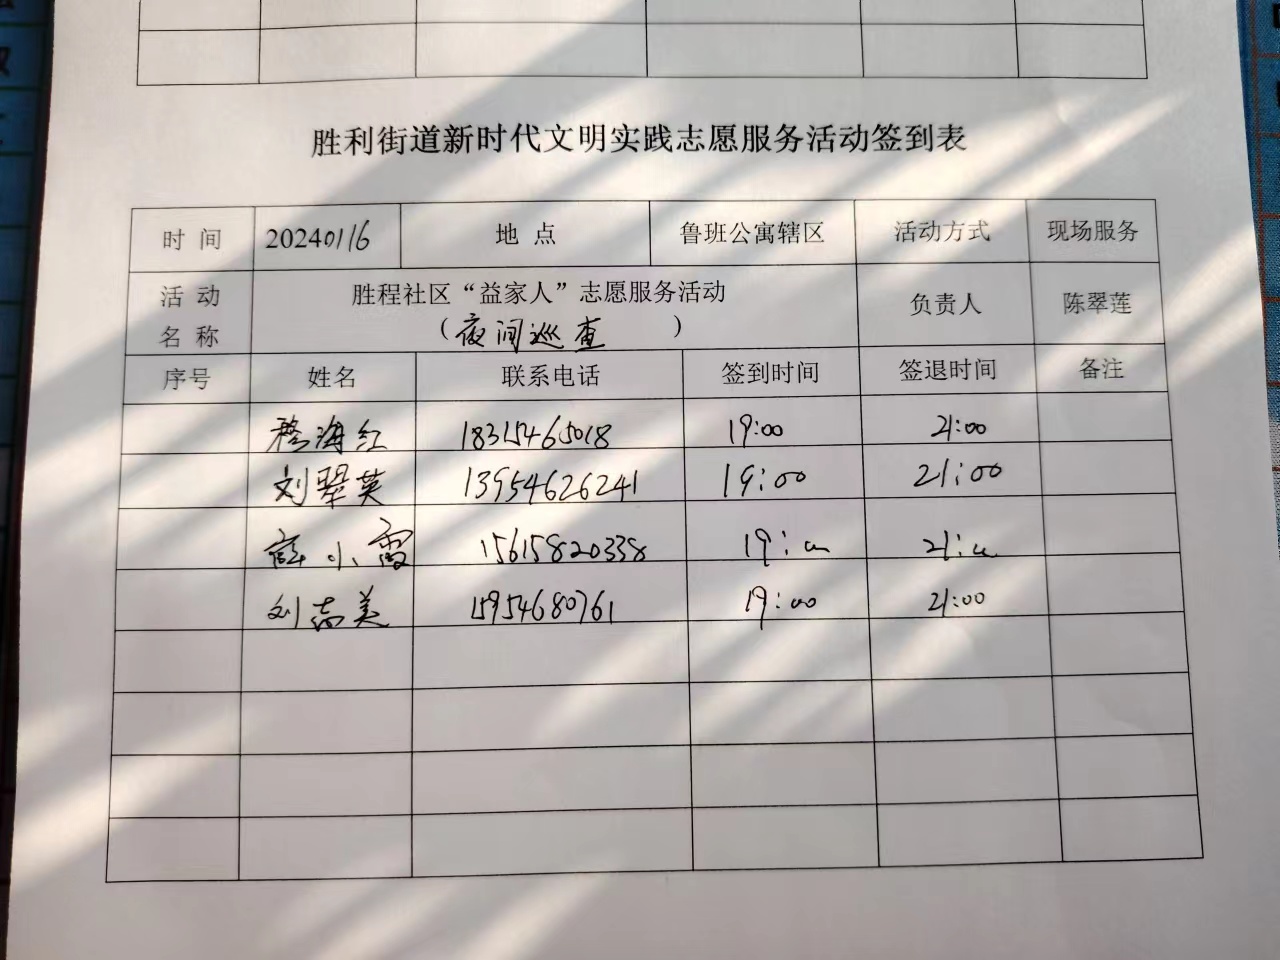 胜利街道新时代文明实践志愿服务活动签到表
时 间 20240116 地 点 鲁班公寓辖区 活动方式 现场服务
活 动 名 称 胜程社区“益家人”志愿服务活动 负责人 陈翠莲
（夜间巡查）
序号 姓名 联系电话 签到时间 签退时间 备注
穆海红 18315465018 19:00 21:00
刘翠英 13954626241 19:00 21:00
薛小霞 15615820338 19:00 21:00
刘志美 15954680761 19:00 21:00